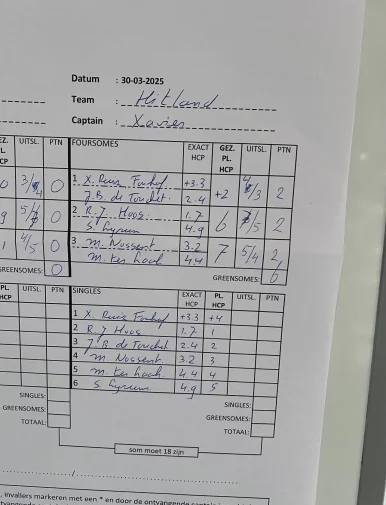 Datum : 30-03-2025
Team : Hitland
Captain : Xavier
EZ. UITSL. PTN FOURSOMES EXACT HCP GEZ. PL. HCP UITSL. PTN
L. CP
0 3/4 0 1 X. Ruis +3.3 +2 4/3 2
J.B. de Touchet. 2.4
9 0 2 R.J. Hoos. 1.7 6 /5 2
S. 4.9
1 4/5 0 3 M. Nossent. 3.2 7 5/4 2
M. ter haak 4.4
GREENSOMES: 0 GREENSOMES: 6
PL. HCP UITSL. PTN SINGLES EXACT HCP PL. HCP UITSL. PTN
1 X. Ruis +3.3 +4
2 R J Hoos 1.7 1
3 J B de Touchet 2.4 2
4 M Nossent. 3.2 3
5 M. ter haak. 4.4 4
6 S. 4.9 5
SINGLES: SINGLES:
GREENSOMES: GREENSOMES:
TOTAAL: TOTAAL:
som moet 18 zijn
, invallers markeren met een * en door de ontvangende